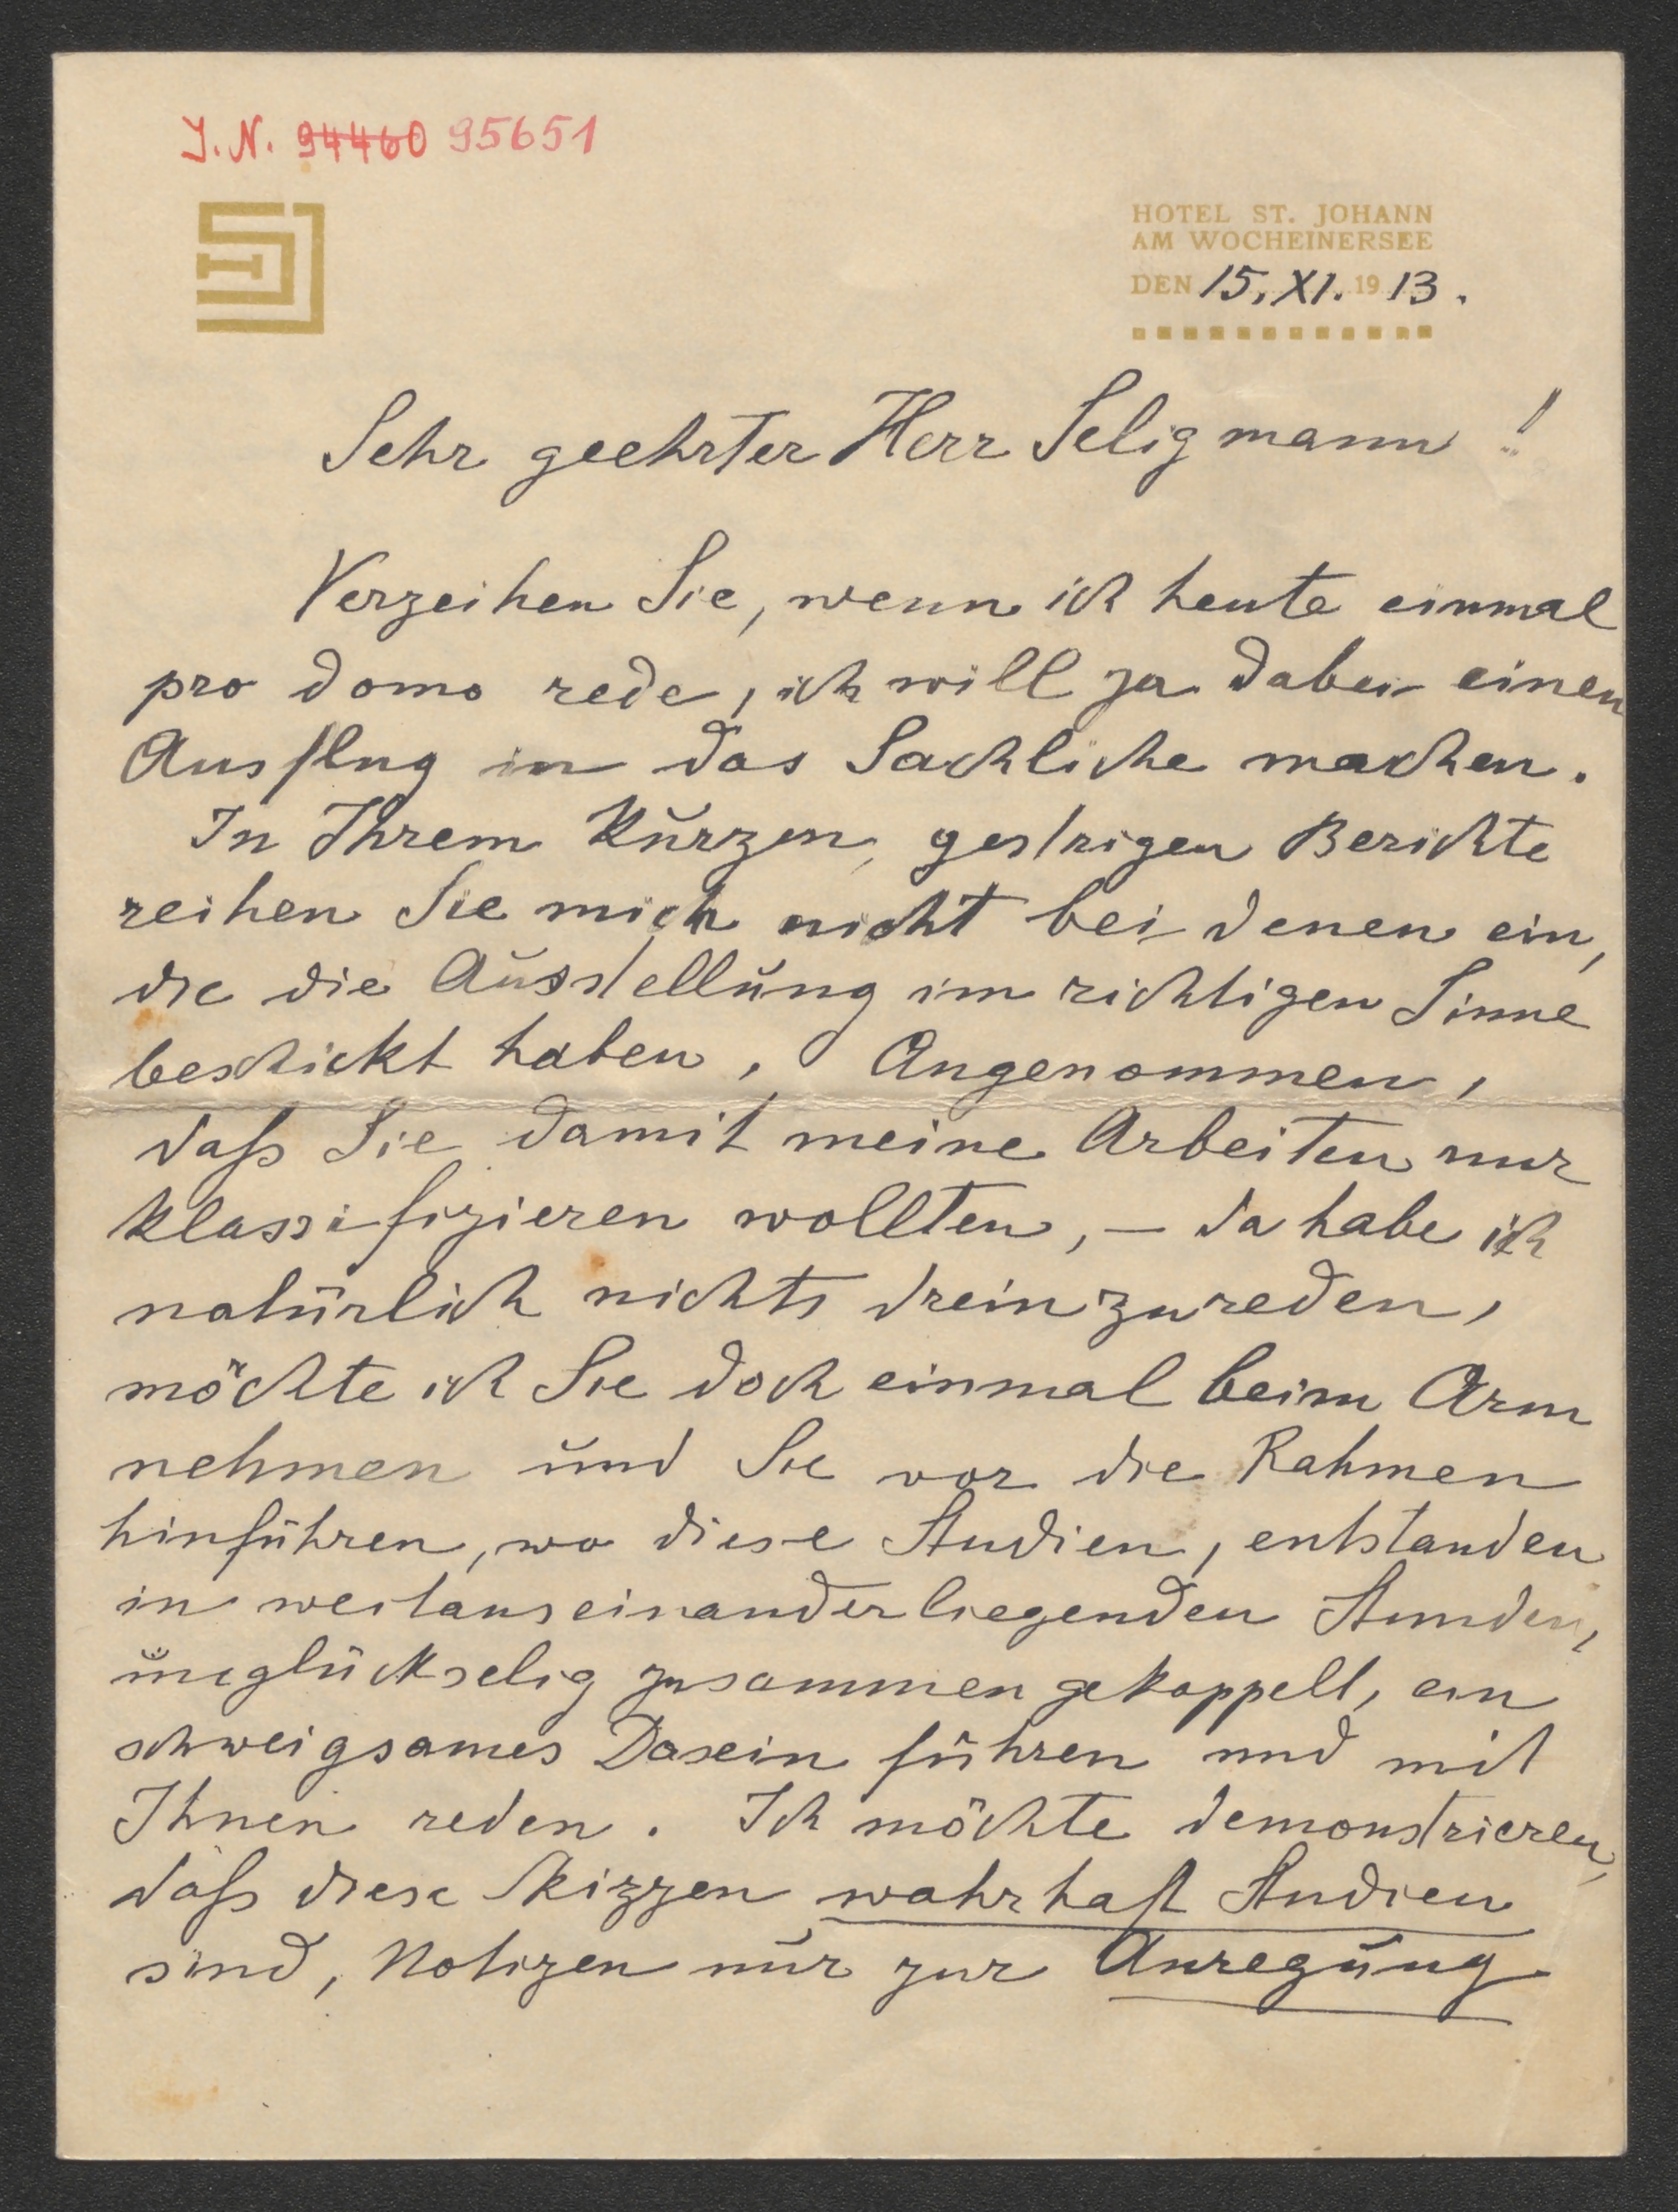 J. N. 94460 95651
HOTEL ST. JOHANN
AM WOCHEINERSEE
DEN 15. XI. 1913.
Sehr geehrter Herr Seligmann!
Verzeihen Sie, wenn ich heute einmal
pro domo rede, ich will ja dabei einen
Ausflug in das Sachliche machen.
In Ihrem kurzen, gestrigen Berichte
reihen Sie mich nicht bei denen ein,
die die Ausstellung im richtigen Sinne
beschickt haben. Angenommen,
daß Sie damit meine Arbeiten nur
klassifizieren wollten, – da habe ich
natürlich nichts dreinzureden,
möchte ich Sie doch einmal beim Arm
nehmen und Sie vor die Rahmen
hinführen, wo diese Studien, entstanden
in weitauseinanderliegenden Stunden,
unglückselig zusammengekoppelt, ein
schweigsames Dasein führen und mit
Ihnen reden. Ich möchte demonstrieren,
daß diese Skizzen wahrhaft Studien
sind, Notizen nur zur Anregung